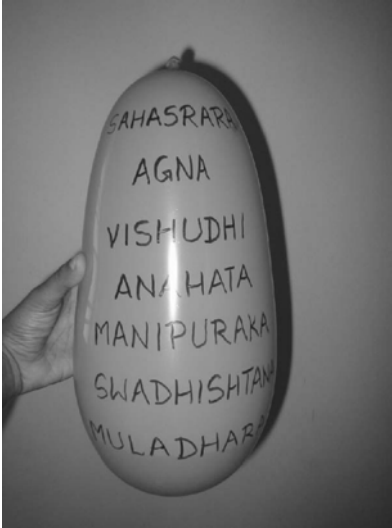 SAHASRARA
AGNA
VISHUDHI
ANAHATA
MANIPURAKA
SWADHISHTANA
MULADHARA